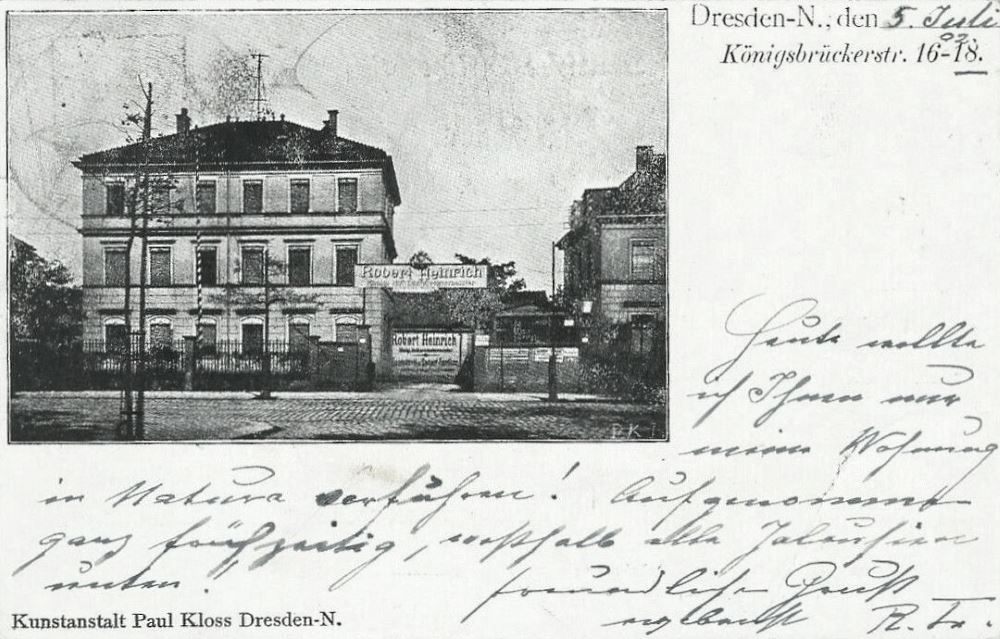 Dresden-N., den 5. Juli
02.
Königsbrückerstr. 16-18.
Robert Heinrich
Robert Heinrich
P.K.
Heute wollte
ich Ihnen nur
meine Wohnung
in Natura vorführen! Aufgenommen
ganz frühzeitig, weßhalb alle Jalousieen
unten!
freundlichen Gruß
R. Fr.
Kunstanstalt Paul Kloss Dresden-N.